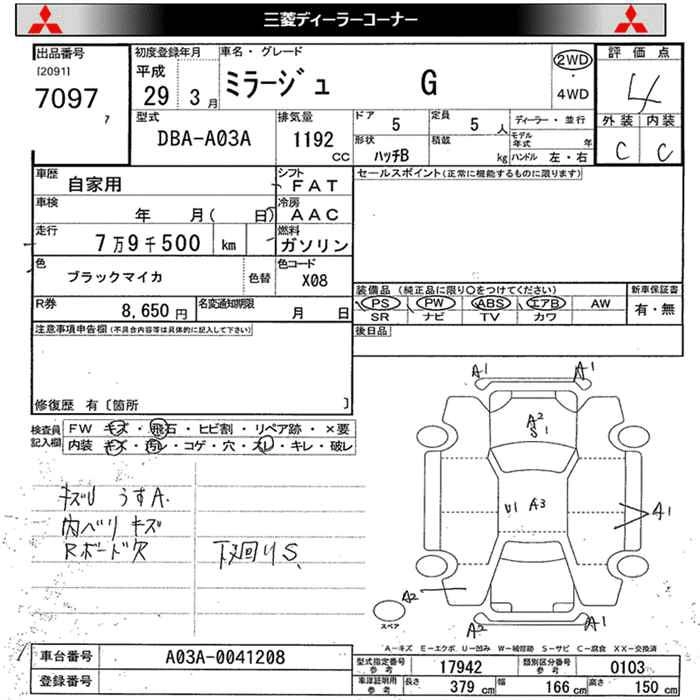 三菱ディーラーコーナー
出品番号 初度登録年月 車名・グレード 評価点
[2091] 平成 ミラージュ G 2WD ・ 4WD 4
7097 29 3月
型式 排気量 ドア 定員 ディーラー・並行 外装 内装
DBA-A03A 1192 CC 5 5人 モデル年式 年 C C
形状 積載 ハッチB kg ハンドル 左・右
車歴 自家用 シフト FAT セールスポイント(正常に機能するものに限ります)
車検 年 月( 日) 冷房 AAC
走行 7万9千500 km 燃料 ガソリン
色 ブラックマイカ 色替 色コード X08
装備品(純正品に限り○をつけてください) 新車保証書
PS PW ABS エアB AW 有・無
SR ナビ TV カワ
R券 8,650円 名変通知期限 月 日
注意事項申告欄(不具合内容等は具体的に記入して下さい) 後日品
修復歴 有〔箇所 〕
検査員記入欄 FW キズ・飛石・ヒビ割・リペア跡・×要
内装 キズ・汚レ・コゲ・穴・スレ・キレ・破レ
キズU うすA.
内ベリ キズ
Rボード欠 下廻りS.
A1 A1
A2
S1
U1 A3
A1
A2
A2 A1
スペア
A-キズ E-エクボ U-凹み W-補修跡 S-サビ C-腐食 XX-交換済
車台番号 A03A-0041208
登録番号
型式指定番号 参考 17942 類別区分番号 参考 0103
車庫証明用 参考 長さ 379cm 幅 166cm 高さ 150cm